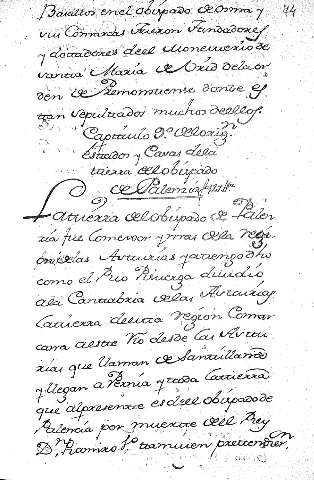 44
Basallos en el obispado de osma y
sus Comarcas fueron fundadores
y dotadores de el Monesterio de
santa Maria de la or
den de Premonstense donde es
tan sepultados muchos de ellos.
Capitulo 9º. del orign
estados y Casas de la
tierra de el obispado
de Palencia
La tierra de el obispado de Palen
zia fue Comedor y mas de la regi
on de las Asturias ya tengo dho
como el Rio Pisuerga dividio
a la Cantabria de las Asturias
La tierra de esta region Comar
cana a este rio desde las Astu
rias que llaman de Santillana
y llegan a Pernia y toda la tierra
que al presente es de el obispado de
Palencia por muerte de el Rey
Dn. Ramiro 1º. tambien pretendien